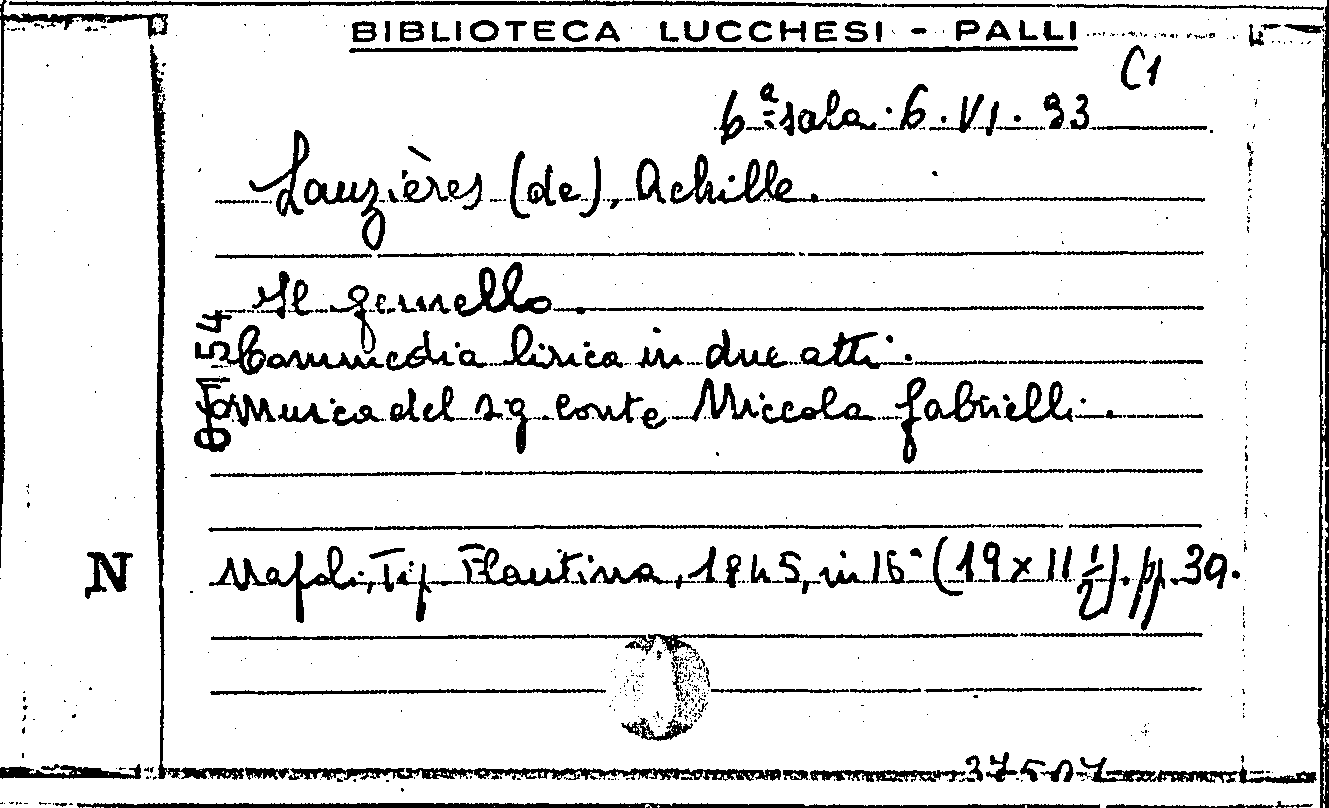 BIBLIOTECA LUCCHESI - PALLI
C1
6ª sala. 6. VI. 33
Lauzières (de), Achille.
Il gemello.
Commedia lirica in due atti.
Musica del sig. conte Niccola Gabrielli.
54
N
Napoli, Tip. Flautina, 1845, in 16° (19 x 11 1/2). pp. 39.
37507